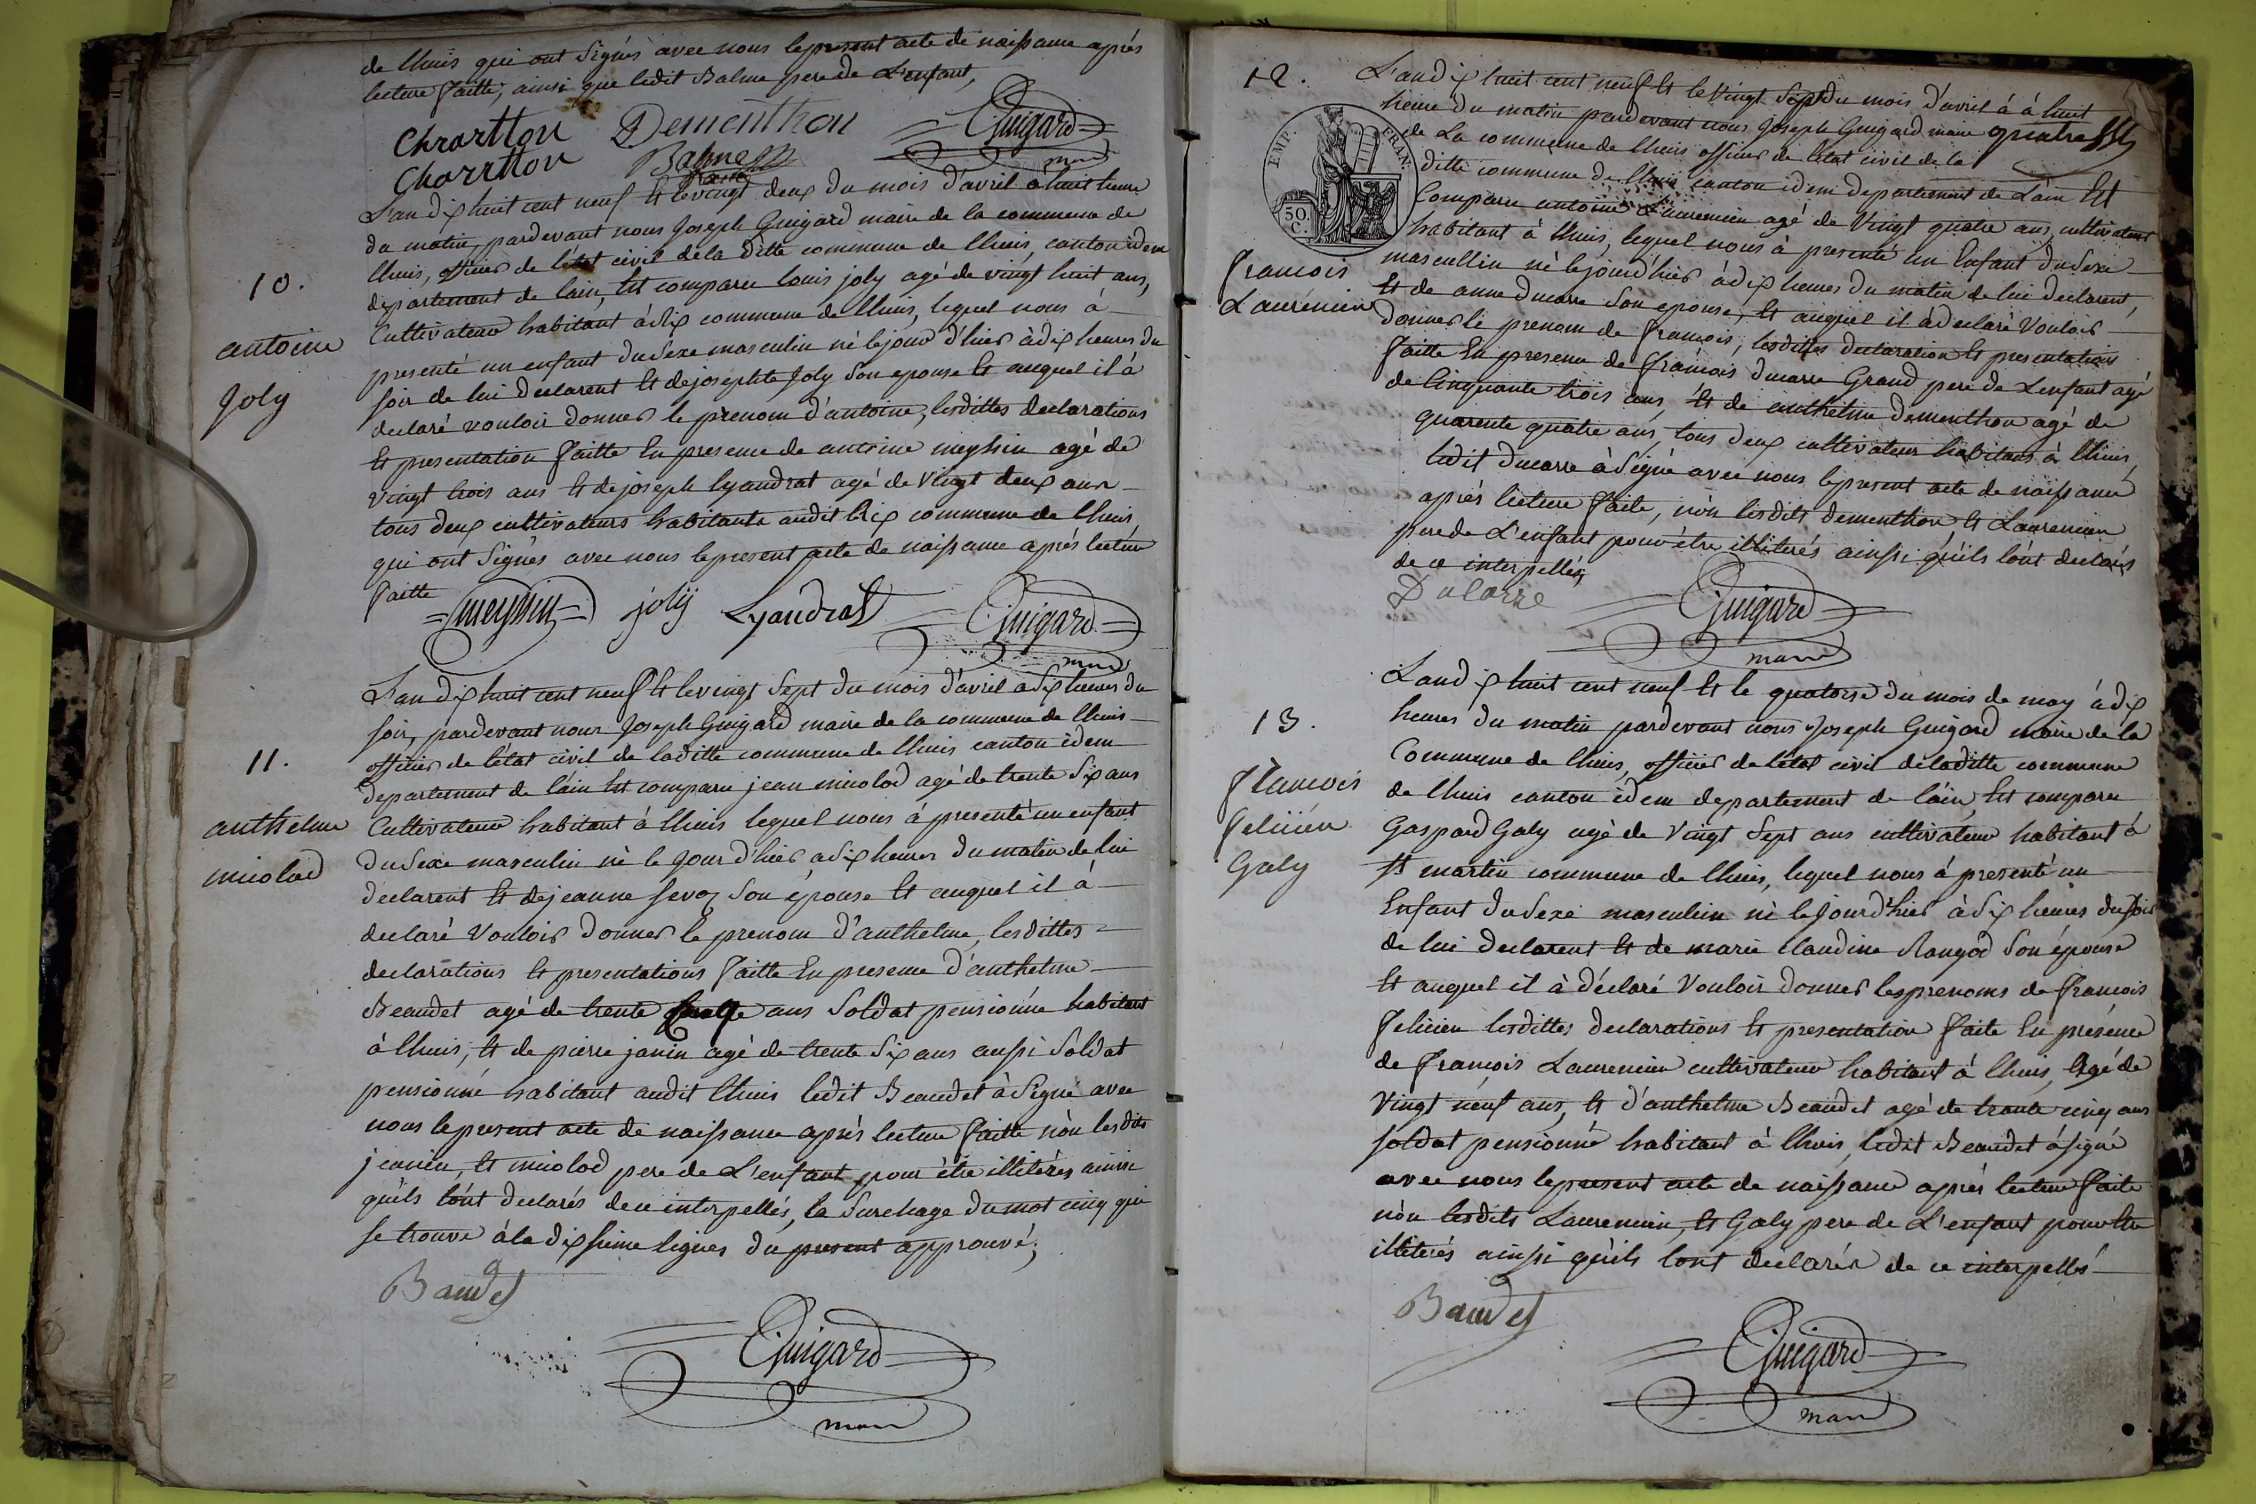 de lhuis qui ont signés avec nous le present acte de naissance aprés
lecture faitte, ainsi que ledit Balme pere de L'enfant,
Chrartton Dementhon Guigard
Charrtton Balme maire
10.
antoine
Joly
L'an dix huit cent neuf Et le vingt deux du mois d'avril à huit heure
du matin, pardevant nous Joseph Guigard maire de la commune de
lhuis, officier de l'état civil de la ditte commune de lhuis, canton idem
departement de lain, Est comparu louis joly agé de vingt huit ans,
Cultivateur habitant à Rix commune de lhuis, lequel nous à
presenté un enfant du sexe masculin né le jour d'hier à dix heures du
soir de lui declarent Et de josephte Joly son epouse Et auquel il à
declaré vouloir donner le prenom d'antoine, lesdittes declarations
Et presentation faitte En presence de antoine meyssin agé de
vingt trois ans Et de joseph lyandrat agé de vingt deux ans
tous deux cultivateurs habitants audit Rix commune de lhuis,
qui ont signés avec nous le present acte de naissance aprés lecture
faitte
meyssin joly Lyandrat Guigard
maire
11.
anthelme
micolod
L'an dix huit cent neuf Et le vingt sept du mois d'avril a six heures du
soir, pardevant nous Joseph Guigard maire de la commune de lhuis
officier de l'état civil de laditte commune de lhuis canton idem
departement de l'ain Est comparu jean micolod agé de trente six ans
Cultivateur habitant à lhuis lequel nous à presenté un enfant
du sexe masculin né le jour d'hier a six heures du matin de lui
declarent Et de jeanne sevoz son épouse Et auquel il à
declaré vouloir donner le prenom d'anthelme, lesdittes
declarations Et presentations faitte En presence d'anthelme
Beaudet agé de trente cinq ans soldat pensionné habitant
à lhuis, Et de pierre janin agé de trente six ans aussi soldat
pensionné habitant audit lhuis ledit Beaudet à signé avec
nous le present acte de naissance aprés lecture faitte nòn lesdits
jeanin, Et micolod pere de L'enfant pour étre illitérés ainsi
qu'ils l'ont declarés de ce interpellés, la surchage du mot cinq qui
se trouve à la dixsieme lignes du present approuvé;
Baudet
Guigard
maire
12.
EMP. FRAN.
50. C.
francois
Laurencin
L'an dix huit cent neuf Et le vingt sept du mois d'avril à à huit
heure du matin pardevant nous Joseph Guigard maire
de La commune de lhuis officier de l'état civil de la
ditte commune de lhuis canton idem departement de Lain Est
Comparu antoine Laurencin agé de vingt quatre ans, cultivateur
habitant à lhuis, lequel nous à presenté un Enfant du sexe
mascullin né le jourd'hier à dix heures du matin de lui declarent,
Et de anne ducarre son epouse, Et auquel il à declaré vouloir
donner le prenom de francois, lesdittes declaration Et presentation
faitte En presence de francois ducarre Grand pere de L'enfant agé
de Cinquante trois ans, Et de anthelme dementhon agé de
quarente quatre ans, tous deux cultivateur habitans à lhuis,
ledit ducarre à signé avec nous le present acte de naissance
aprés lecture faite, nòn lesdits dementhon Et Laurencin
pere de L'enfant pour étre illiterés ainssi qu'ils l'ont declarés
de ce interpellés
Ducarre
Guigard
maire
13.
francois
felicien
Galy
L'an dix huit cent neuf Et le quatorse du mois de may à dix
heures du matin pardevant nous Joseph Guigard maire de la
Commune de lhuis, officier de l'état civil de laditte commune
de lhuis canton idem departement de lain, Est comparu
Gaspard Galy agé de vingt sept ans cultivateur habitant à
St martin commune de lhuis, lequel nous à presenté un
Enfant du sexe masculin né le jourd'hier à six heures du soir
de lui declarent Et de marie Claudine Rangod son épouse
Et auquel il à déclaré vouloir donner les prenoms de francois
felicien lesdittes declarations Et presentation faite En présence
de francois Laurencin cultivateur habitant à lhuis, agé de
vingt neuf ans, Et d'anthelme Beaudet agé de trante cinq ans
soldat pensionné habitant à lhuis, ledit Beaudet à signé
avec nous le present acte de naissance aprés lecture faite
nòn lesdits Laurencin, Et Galy pere de L'enfant pour Etre
illiterés ainssi qu'ils l'ont declarés de ce interpellés
Baudet
Guigard
maire